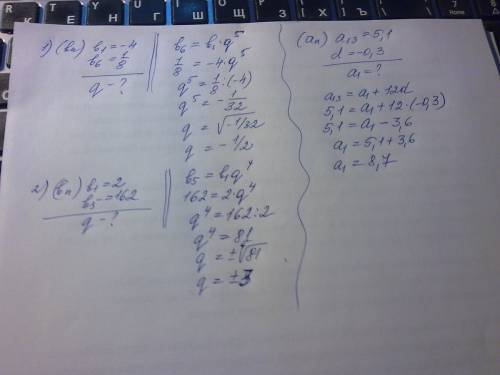 1) (bn) b₁ = -4
b₆ = 1/8
q - ?
b₆ = b₁ · q⁵
1/8 = -4 · q⁵
q⁵ = 1/8 : (-4)
q⁵ = -1/32
q = √-1/32
q = -1/2
2) (bn) b₁ = 2
b₅ = 162
q - ?
b₅ = b₁q⁴
162 = 2 · q⁴
q⁴ = 162 : 2
q⁴ = 81
q = ±⁴√81
q = ±3
(an) a₁₃ = 5,1
d = -0,3
a₁ = ?
a₁₃ = a₁ + 12d
5,1 = a₁ + 12 · (-0,3)
5,1 = a₁ - 3,6
a₁ = 5,1 + 3,6
a₁ = 8,7